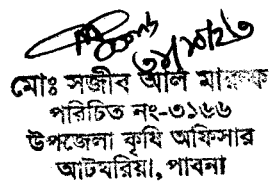 মোঃ সজীব আল মারুফ
পরিচিত নং-৩১৬৬
উপজেলা কৃষি অফিসার
আটঘরিয়া, পাবনা